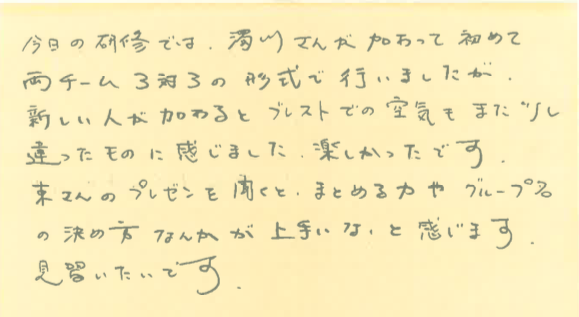 今日の研修では、濁川さんが加わって初めて
両チーム3対3の形式で行いましたが、
新しい人が加わるとブレストでの空気もまた少し
違ったものに感じました。楽しかったです。
東さんのプレゼンを聞くと、まとめる力やグループ名
の決め方なんかが上手いな、と感じます。
見習いたいです。